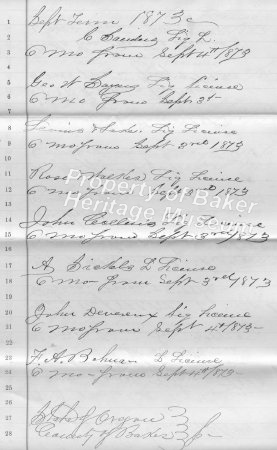 1
2 Sept Term 1873
3 C Sanders Liq L.
4 6 mo from Sept 4th 1873
5
6 Geo W License
7 6 mo from Sept 3rd
8
9 Liq License
10 6 mo from Sept 2nd 1873
11 Ross Liq License
12 6 mo from Sept 3rd 1873
13
14 John Collins Liq License
15 6 mo from Sept 3rd 1873
16
17 A L License
18 6 mo from Sept 3rd 1873
19
20 John Devereux Liq License
21 6 mo from Sept 4th 1873
22
23 F. A. L License
24 6 mo from Sept 4th 1873
25
26
27 State of Oregon
28 County of Baker
Property of Baker
Heritage Museum